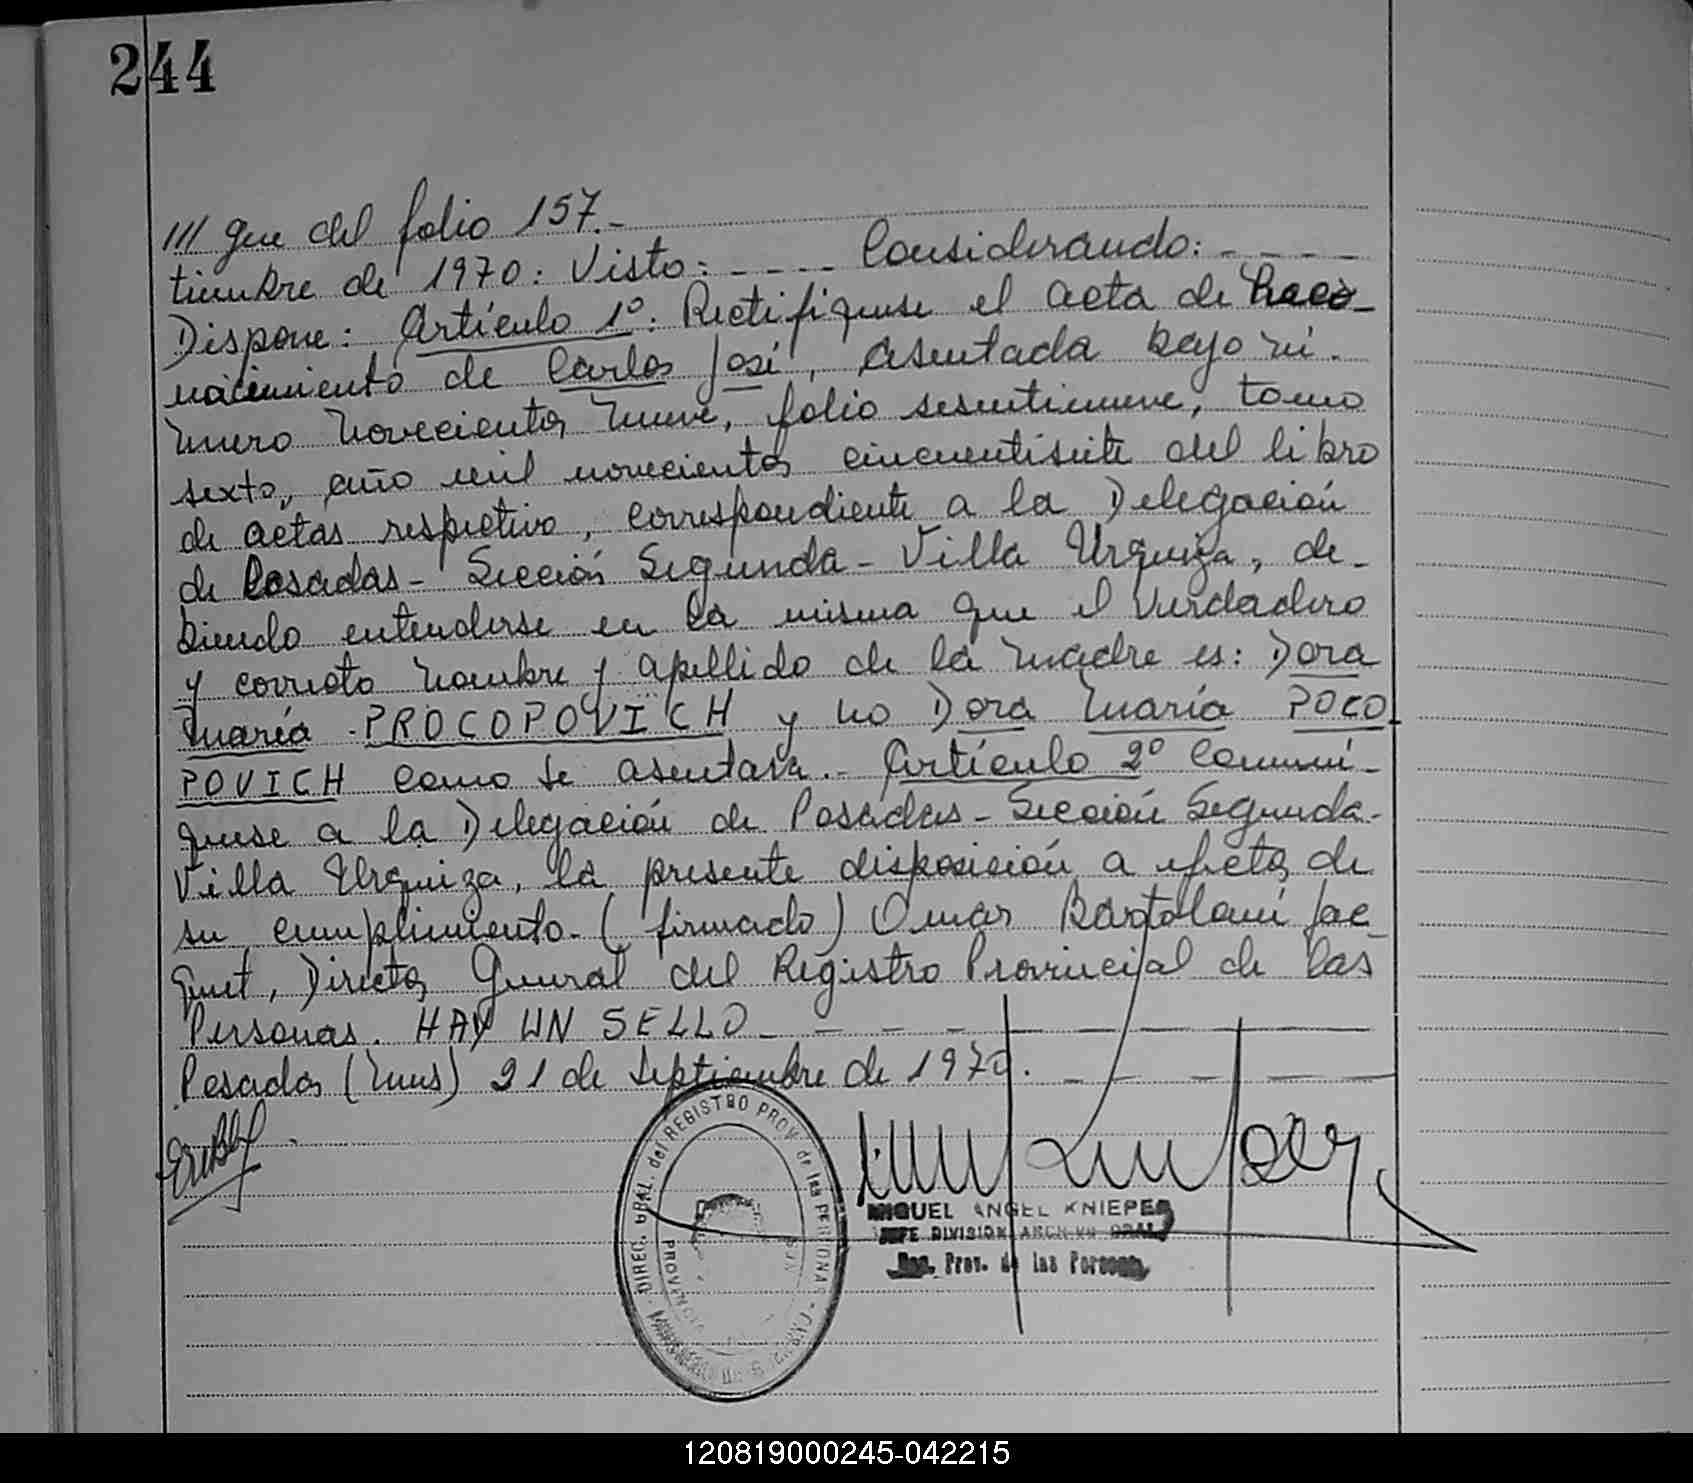 244
/// gue del folio 157.-
tiembre de 1970: Visto: - - - - Considerando: - - - -
Dispone: Artículo 1º: Rectifíquese el acta de
nacimiento de Carlos José, asentada bajo nú-
mero novecientos nueve, folio sesentinueve, tomo
sexto, año mil novecientos cincuentisiete del libro
de actas respectivo, correspondiente a la Delegación
de Posadas - Sección Segunda - Villa Urquiza, de-
biendo entenderse en la misma que el verdadero
y correcto nombre y apellido de la madre es: Dora
María PROCOPOVICH y no Dora María POCO
POVICH como se asentara.- Artículo 2º Comuní-
quese a la Delegación de Posadas - Sección Segunda -
Villa Urquiza, la presente disposición a efectos de
su cumplimiento.- (firmado) Omar Bartolomé Jac-
quet, Director General del Registro Provincial de las
Personas. HAY UN SELLO - - - -
Posadas (Mnes) 21 de Septiembre de 1970. - - - -
DIREC. GRAL. del REGISTRO PROV. de las PERSONAS
PROVINCIA
MIGUEL ANGEL KNIEPER
JEFE DIVISION ARCHIVO GRAL
Reg. Prov. de las Personas
120819000245-042215